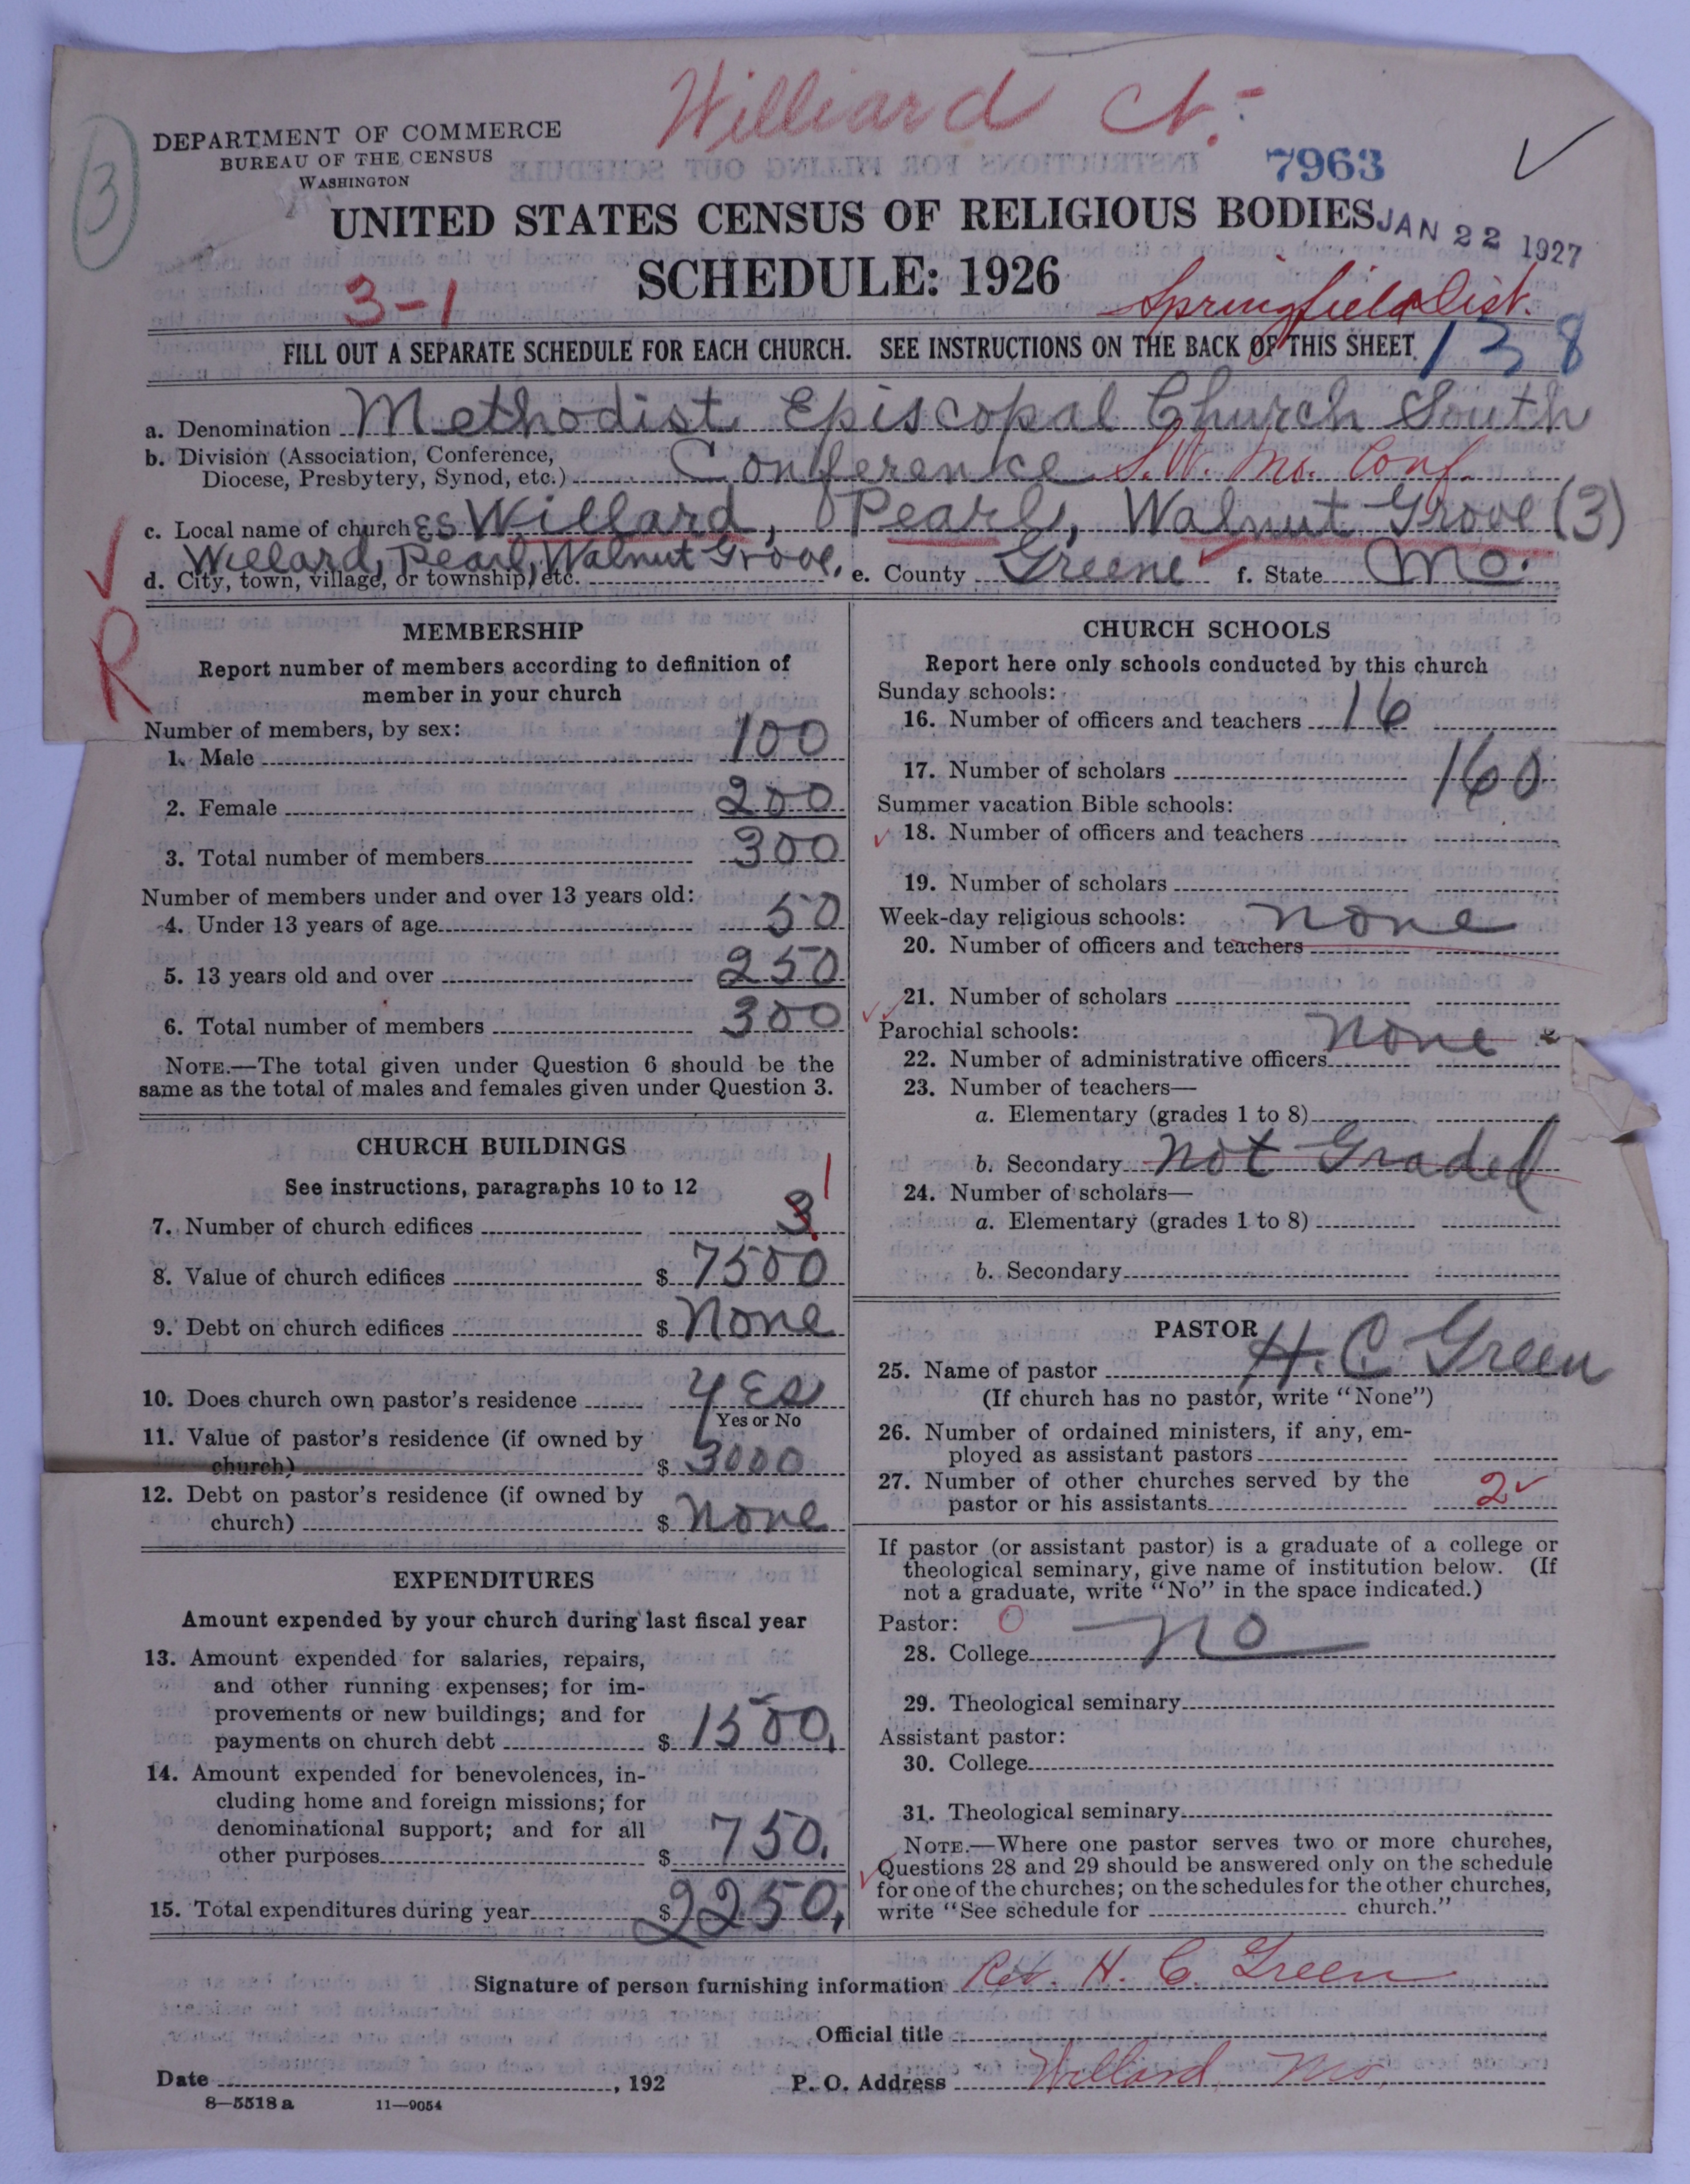 Williard Ct.
3
DEPARTMENT OF COMMERCE
BUREAU OF THE CENSUS
WASHINGTON
7963
UNITED STATES CENSUS OF RELIGIOUS BODIES
JAN 22 1927
SCHEDULE: 1926
3-1
Springfield Dist.
FILL OUT A SEPARATE SCHEDULE FOR EACH CHURCH. SEE INSTRUCTIONS ON THE BACK OF THIS SHEET.
138
a. Denomination Methodist Episcopal Church South
b. Division (Association, Conference,
Diocese, Presbytery, Synod, etc.) Conference S.W. Mo. Conf.
c. Local name of church es Willard, Pearl, Walnut Grove (3)
Willard, Pearl, Walnut Grove.
d. City, town, village, or township, etc. e. County Greene f. State Mo.
R
MEMBERSHIP
Report number of members according to definition of
member in your church
Number of members, by sex:
1. Male 100
2. Female 200
3. Total number of members 300
Number of members under and over 13 years old:
4. Under 13 years of age 50
5. 13 years old and over 250
6. Total number of members 300
NOTE.—The total given under Question 6 should be the
same as the total of males and females given under Question 3.
CHURCH BUILDINGS
See instructions, paragraphs 10 to 12
7. Number of church edifices 3 1
8. Value of church edifices $ 7500
9. Debt on church edifices $ None
10. Does church own pastor's residence Yes
Yes or No
11. Value of pastor's residence (if owned by
church) $ 3000
12. Debt on pastor's residence (if owned by
church) $ None
EXPENDITURES
Amount expended by your church during last fiscal year
13. Amount expended for salaries, repairs,
and other running expenses; for im-
provements or new buildings; and for
payments on church debt $ 1500.
14. Amount expended for benevolences, in-
cluding home and foreign missions; for
denominational support; and for all
other purposes $ 750.
15. Total expenditures during year $ 2250.
CHURCH SCHOOLS
Report here only schools conducted by this church
Sunday schools:
16. Number of officers and teachers 16
17. Number of scholars 160
Summer vacation Bible schools:
18. Number of officers and teachers
19. Number of scholars
Week-day religious schools: none
20. Number of officers and teachers
21. Number of scholars
Parochial schools: none
22. Number of administrative officers
23. Number of teachers—
a. Elementary (grades 1 to 8)
b. Secondary not Graded
24. Number of scholars—
a. Elementary (grades 1 to 8)
b. Secondary
PASTOR
25. Name of pastor H. C Green
(If church has no pastor, write "None")
26. Number of ordained ministers, if any, em-
ployed as assistant pastors
27. Number of other churches served by the
pastor or his assistants 2
If pastor (or assistant pastor) is a graduate of a college or
theological seminary, give name of institution below. (If
not a graduate, write "No" in the space indicated.)
Pastor: O
28. College no
29. Theological seminary
Assistant pastor:
30. College
31. Theological seminary
NOTE.—Where one pastor serves two or more churches,
Questions 28 and 29 should be answered only on the schedule
for one of the churches; on the schedules for the other churches,
write "See schedule for church."
Signature of person furnishing information Rev. H. C. Green
Official title
Date , 192 P. O. Address Willard, Mo.
8—5518a 11—9054